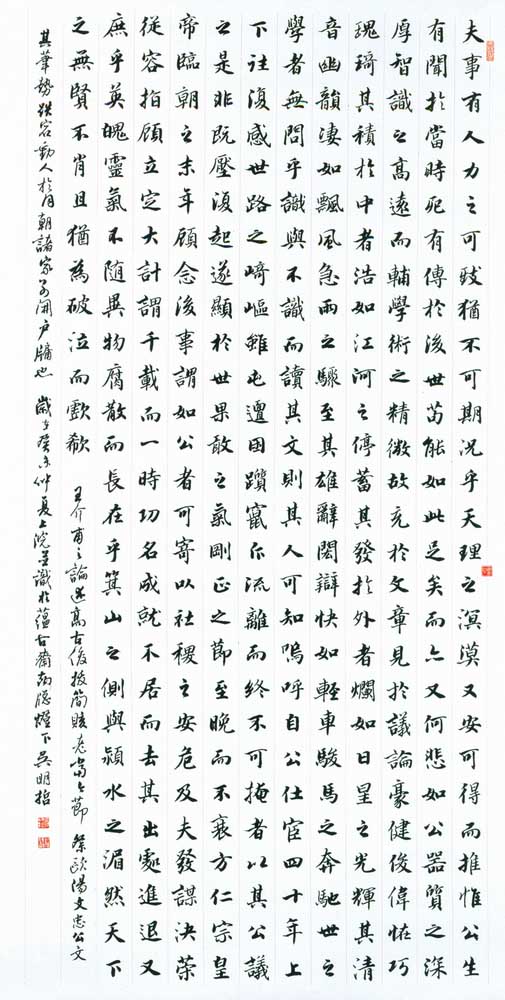 夫事有人力之可致猶不可期況乎天理之溟漠又安可得而推惟公生
有聞於當時死有傳於後世苟能如此足矣而亦又何悲如公器質之深
厚智識之高遠而輔學術之精微故充於文章見於議論豪健俊偉怪巧
瑰琦其積於中者浩如江河之停蓄其發於外者爛如日星之光輝其清
音幽韻淒如飄風急雨之驟至其雄辭閎辯快如輕車駿馬之奔馳世之
學者無問乎識與不識而讀其文則其人可知嗚呼自公仕宦四十年上
下往復感世路之崎嶇雖屯邅困躓竄斥流離而終不可掩者以其公議
之是非既壓復起遂顯於世果敢之氣剛正之節至晚而不衰方仁宗皇
帝臨朝之末年顧念後事謂如公者可寄以社稷之安危及夫發謀決策
從容指顧立定大計謂千載而一時功名成就不居而去其出處進退又
庶乎英魄靈氣不隨異物腐散而長在乎箕山之側與潁水之湄然天下
之無賢不肖且猶為破泣而歔欷 王介甫之論高古俊拔簡賅老當節祭歐陽文忠公文
其筆勢跌宕動人於朝諸家開戶牖也歲癸未仲夏上浣並識於蘊古齋南牕燈下吳明哲